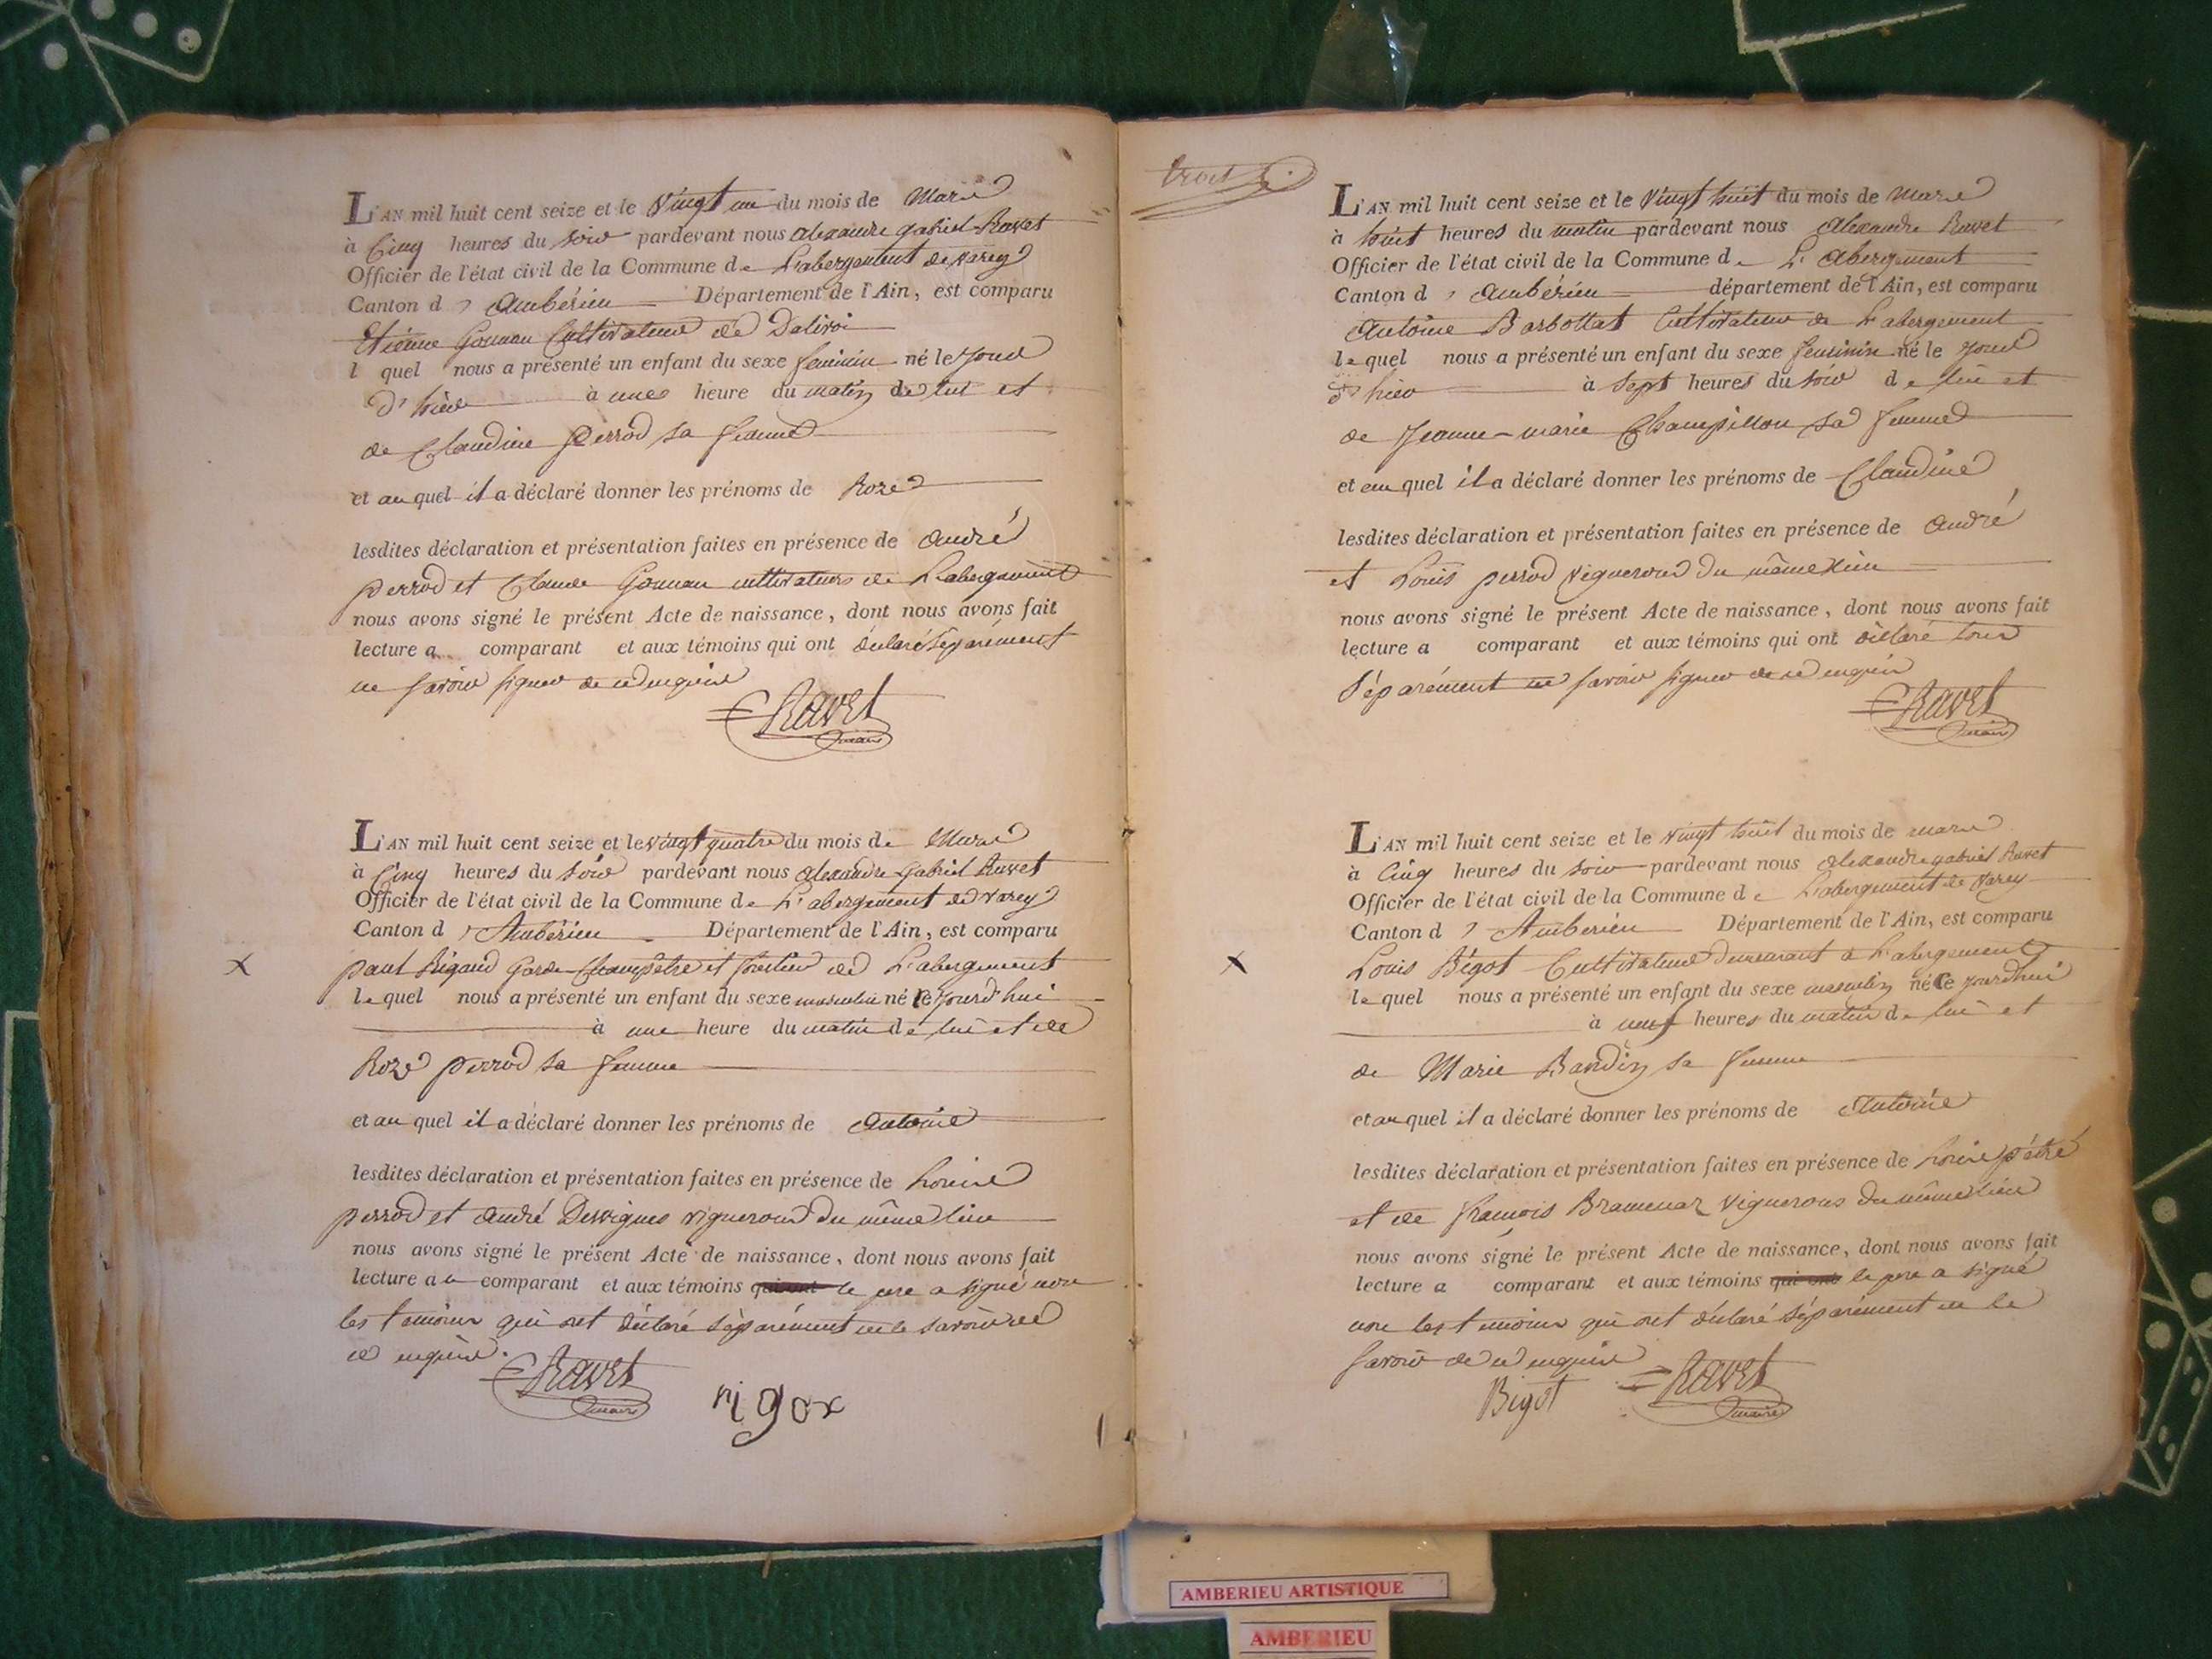 L'AN mil huit cent seize et le Vingt un du mois de Mars
à Cinq heures du soir pardevant nous alexandre gabriel Ravet
Officier de l'état civil de la Commune de L'abergement de Varey
Canton d' Ambérieu Département de l'Ain, est comparu
Etienne Gounan Cultivateur de Dalivoi
l quel nous a présenté un enfant du sexe feminin né le jour
d'hier à une heure du matin de lui et
de Claudine Perrod sa femme
et au quel il a déclaré donner les prénoms de Roze
lesdites déclaration et présentation faites en présence de andré
perrod et Claude Gounan cultivateurs de L'abergement
nous avons signé le présent Acte de naissance, dont nous avons fait
lecture a comparant et aux témoins qui ont déclaré séparément
ne savoir signer de ce enquis
Ravet
maire
L'AN mil huit cent seize et le vingt quatre du mois de Mars
à Cinq heures du soir pardevant nous alexandre gabriel Ravet
Officier de l'état civil de la Commune de L'abergement de Varey
Canton d' Ambérieu Département de l'Ain, est comparu
X
paul Rigaud Garde Champêtre et forestier de L'abergement
le quel nous a présenté un enfant du sexe masculin né ce jourd'hui
à une heure du matin de lui et de
Roze perrod sa femme
et au quel il a déclaré donner les prénoms de antoine
lesdites déclaration et présentation faites en présence de Louis
perrod et andré Desvignes vignerons du même lieu
nous avons signé le présent Acte de naissance, dont nous avons fait
lecture au comparant et aux témoins qui ont le pere a signé non
les temoins qui ont déclaré séparément ne le savoir de
ce enquis.
Ravet
maire
rigox
trois
L'AN mil huit cent seize et le Vingt huit du mois de Mars
à huit heures du matin pardevant nous Alexandre Ravet
Officier de l'état civil de la Commune de L'Abergement
Canton d' Ambérieu département de l'Ain, est comparu
Antoine Barbollat Cultivateur de L'abergement
le quel nous a présenté un enfant du sexe feminin né le jour
d'hier à sept heures du soir de lui et
de Jeanne-marie Champillon sa femme
et au quel il a déclaré donner les prénoms de Claudine
lesdites déclaration et présentation faites en présence de André
et Louis perrod vignerons du même lieu
nous avons signé le présent Acte de naissance, dont nous avons fait
lecture a comparant et aux témoins qui ont déclaré tous
séparément ne savoir signer de ce enquis
Ravet
maire
L'AN mil huit cent seize et le vingt huit du mois de mars
à Cinq heures du soir pardevant nous alexandre gabriel Ravet
Officier de l'état civil de la Commune de L'abergement de Varey
Canton d' Ambérieu Département de l'Ain, est comparu
X
Louis Bigot Cultivateur demeurant à L'abergement
le quel nous a présenté un enfant du sexe masculin né ce jourd'hui
à neuf heures du matin de lui et
de Marie Bandin sa femme
et au quel il a déclaré donner les prénoms de Antoine
lesdites déclaration et présentation faites en présence de Louis pétré
et de françois Bramenar vignerons du même lieu
nous avons signé le présent Acte de naissance, dont nous avons fait
lecture a comparant et aux témoins qui ont le pere a signé
non les temoins qui ont déclaré séparément ne le
savoir de ce enquis
Bigot
Ravet
maire
AMBERIEU ARTISTIQUE
AMBERIEU